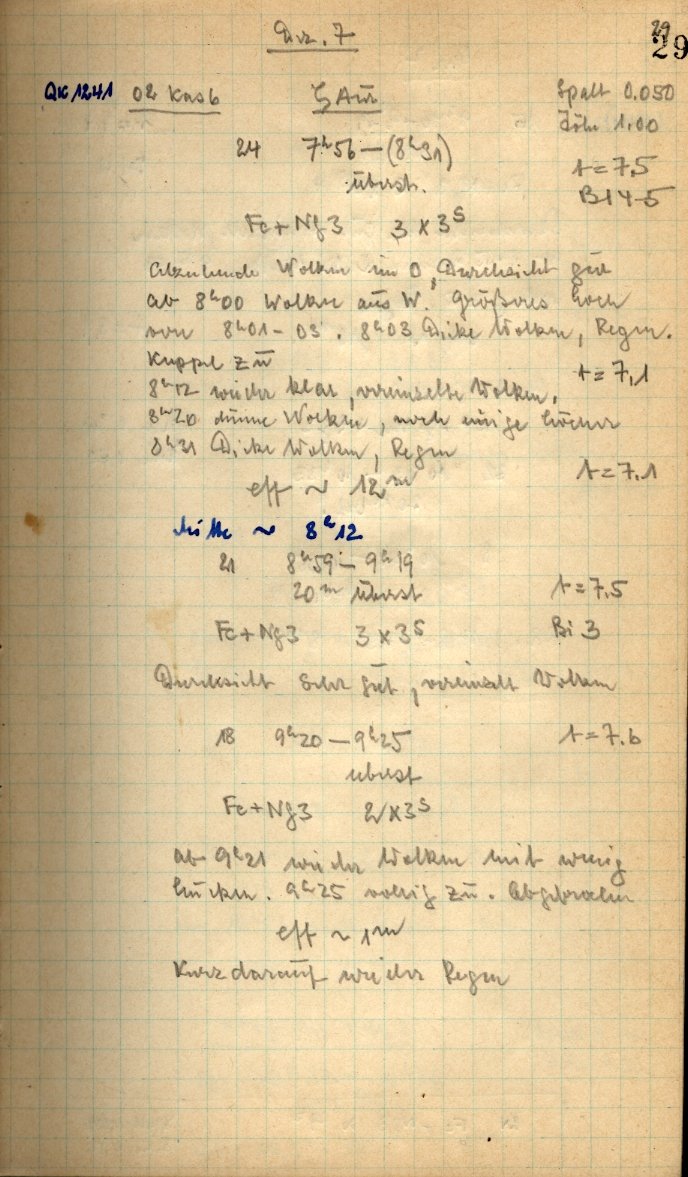 Dez. 7
29
29
QK 1241 02 Kasb ζ Aur Spalt 0.050
Höhe 1.00
24 7h56 — (8h31) t = 7,5
überst. Bi 4-5
Fe + Ng3 3 x 3s
Abziehende Wolken im O, Durchsicht gut
ab 8h00 Wolken aus W. Größeres Loch
von 8h01 - 03. 8h03 Dicke Wolken, Regen.
Kuppel zu t = 7,1
8h12 wieder klar, vereinzelte Wolken.
8h20 dünne Wolken, noch einige Löcher
8h31 Dicke Wolken, Regen
eff ~ 12m t = 7.1
Mitte ~ 8h12
21 8h59 — 9h19
20m überst t = 7.5
Fe + Ng3 3 x 3s Bi 3
Durchsicht sehr gut, vereinzelt Wolken
18 9h20 — 9h25 t = 7.6
überst
Fe + Ng3 2 x 3s
ab 9h21 wieder Wolken mit wenig
Lücken. 9h25 völlig zu. Abgebrochen
eff ~ 1m
Kurz darauf wieder Regen